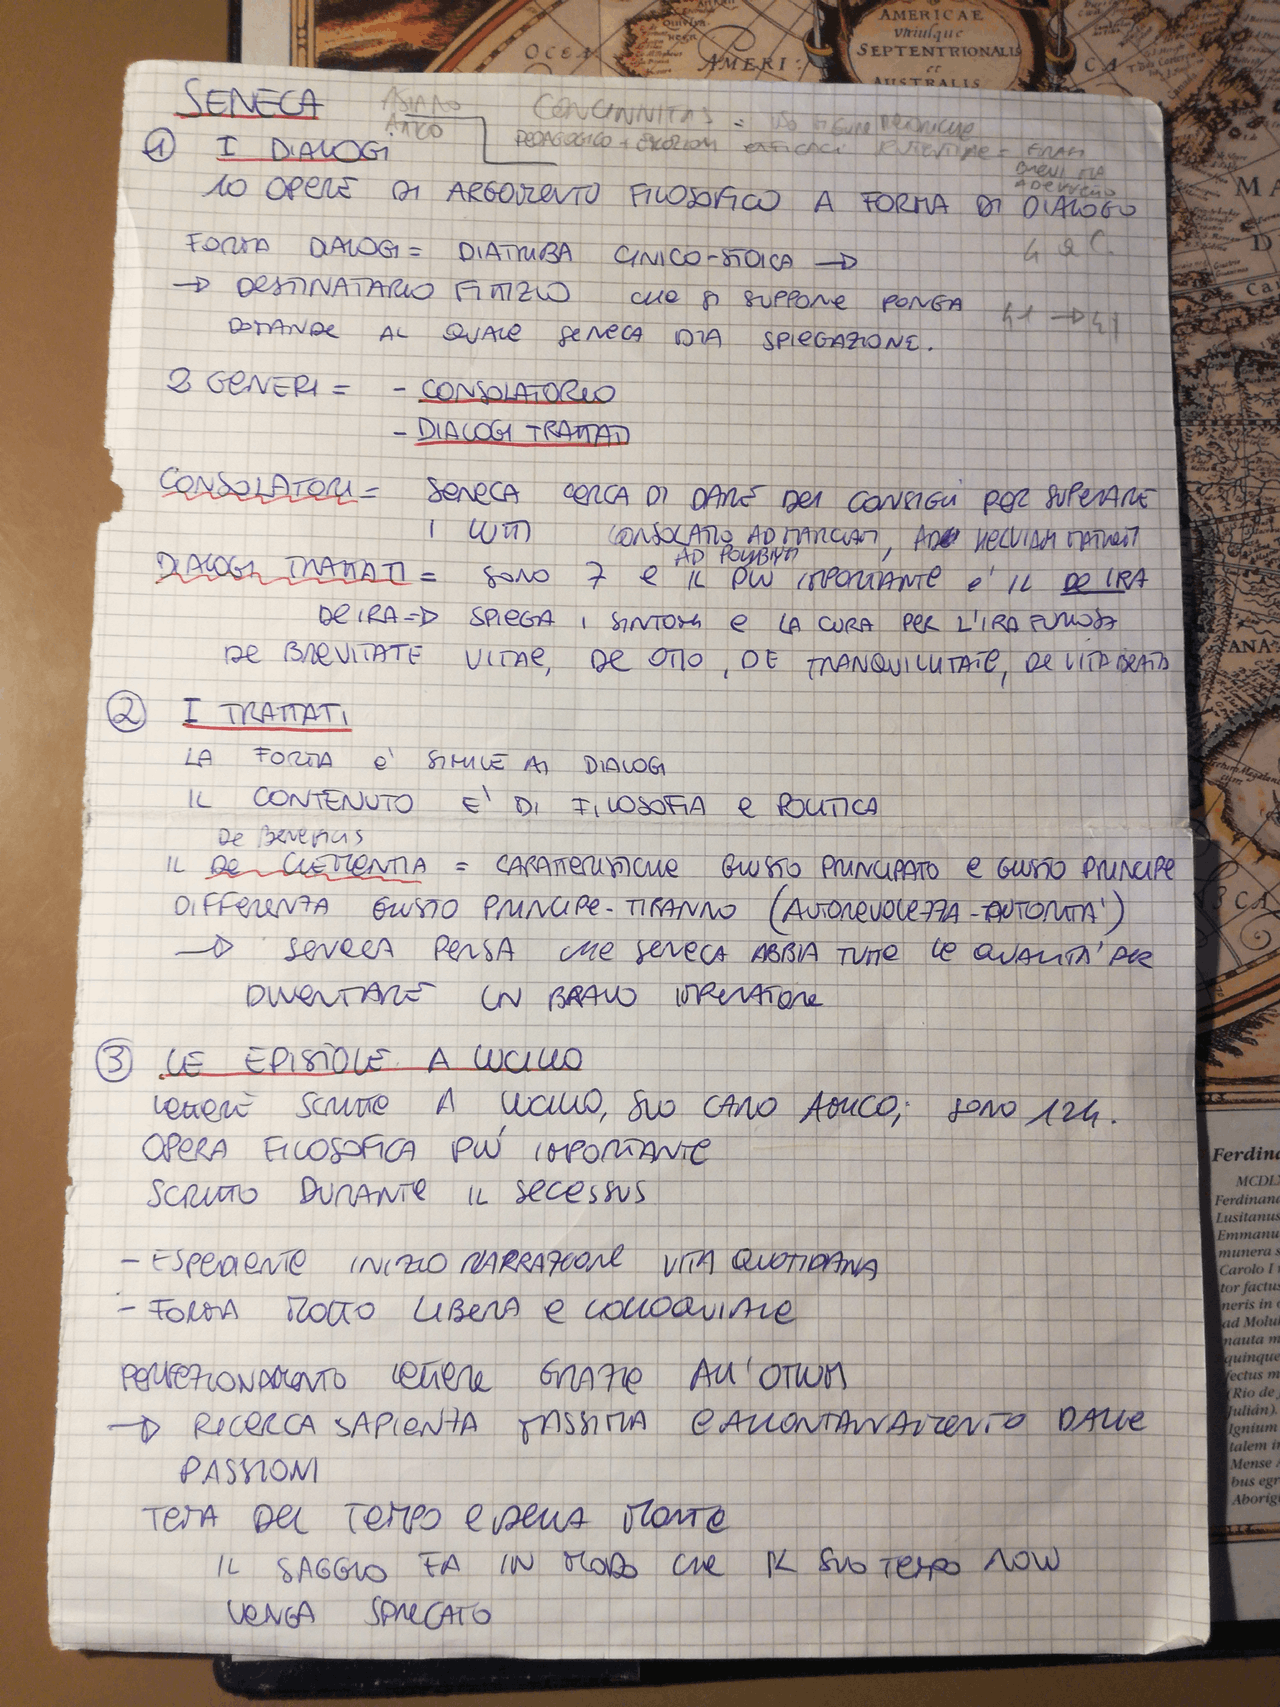 AMERICAE
utriusque
SEPTENTRIONALIS
et
AUSTRALIS
OCEA
AMERI
CA
SENECA
ASIANO
ATTICO
CONCINNITAS = USO FIGURE RETORICHE
PEDAGOGICO + EFFICACI = FRASI
BREVI MA
① I DIALOGI
10 OPERE DI ARGOMENTO FILOSOFICO A FORMA DI DIALOGO
FORMA DIALOGI = DIATRIBA CINICO-STOICA →
→ DESTINATARIO FITTIZIO CHE SI SUPPONE PONGA
DOMANDE AL QUALE SENECA DIA SPIEGAZIONE.
2 GENERI = - CONSOLATORIO
- DIALOGI TRATTATI
CONSOLATORI = SENECA CERCA DI DARE DEI CONSIGLI PER SUPERARE
I LUTTI CONSOLATIO AD MARCIAM, AD HELVIAM MATREM
AD POLYBIUM
DIALOGI TRATTATI = SONO 7 E IL PIÙ IMPORTANTE E' IL DE IRA
DE IRA => SPIEGA I SINTOMI E LA CURA PER L'IRA FURIOSA
DE BREVITATE VITAE, DE OTIO, DE TRANQUILLITATE, DE VITA BEATA
② I TRATTATI
LA FORMA E' SIMILE AI DIALOGI
IL CONTENUTO E' DI FILOSOFIA E POLITICA
DE BENEFICIIS
IL DE CLEMENTIA = CARATTERISTICHE GIUSTO PRINCIPATO E GIUSTO PRINCIPE
DIFFERENZA GIUSTO PRINCIPE-TIRANNO (AUTOREVOLEZZA-AUTORITA')
→ SENECA PENSA CHE SENECA ABBIA TUTTE LE QUALITA' PER
DIVENTARE UN BRAVO IMPERATORE
③ LE EPISTOLE A LUCILIO
LETTERE SCRITTE A LUCILIO, SUO CARO AMICO; SONO 124.
OPERA FILOSOFICA PIU' IMPORTANTE
SCRITTO DURANTE IL SECESSUS
- ESPEDIENTE INIZIO NARRAZIONE VITA QUOTIDIANA
- FORMA MOLTO LIBERA E COLLOQUIALE
PERFEZIONAMENTO LETTERE GRAZIE ALL'OTIUM
→ RICERCA SAPIENZA MASSIMA E ALLONTANAMENTO DALLE
PASSIONI
TEMA DEL TEMPO E DELLA MORTE
IL SAGGIO FA IN MODO CHE IL SUO TEMPO NON
VENGA SPRECATO
Ferdina
MCDL
Ferdinand
Lusitanus
Emmanu
munera s
Carolo I
tor factus
neris in
ad Molu
nauta m
quinque
fectus m
(Rio de
Julián).
Ignium
talem in
Mense
bus egr
Aborig